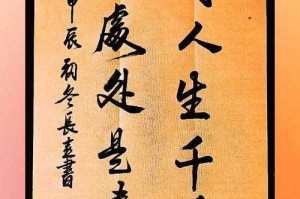 人生千
處处是
甲辰初冬長遠書